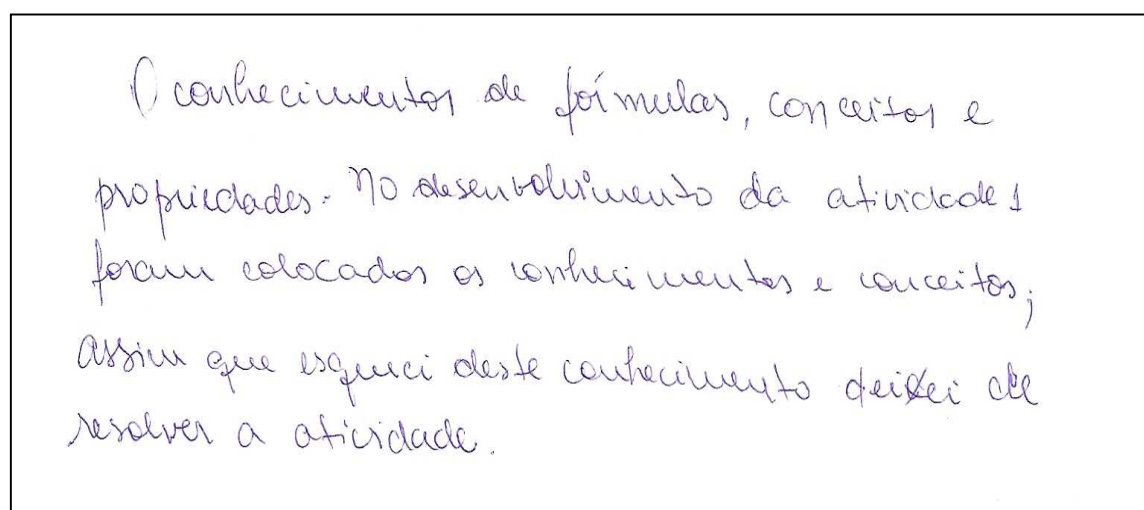 O conhecimentos de fórmulas, conceitos e
propriedades. No desenvolvimento da atividade 1
foram colocados os conhecimentos e conceitos;
assim que esqueci deste conhecimento deixei de
resolver a atividade.